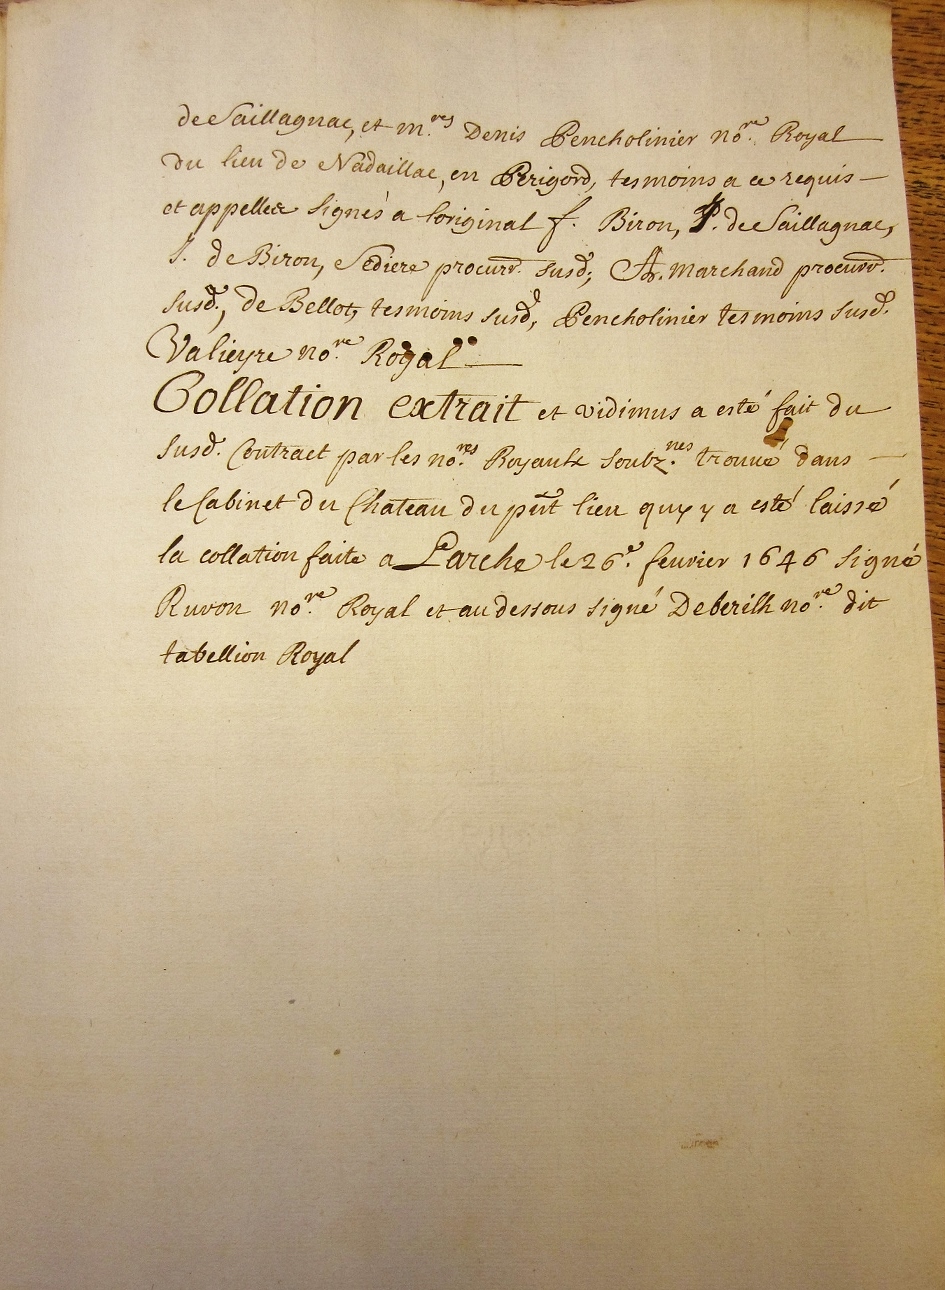 de Saillagnac, et m.res Denis Pencholinier no.re Royal
du lieu de Nadaillac, en Perigord, tesmoins a ce requis
et appellés signés a loriginal f. Biron, P. de Saillagnac,
J. de Biron, Sediere procurr. susd., A. Marchand procurr.
susd., de Bellot, tesmoins susd., Pencholinier tesmoins susd.
Valieyre no.re Royal
Collation extrait et vidimus a esté fait du
susd. Contract par les no.res Royaulx soubz.nes trouué dans
le Cabinet du Chateau du pñt lieu quy y a esté laissé
la collation faite a Larche le 26.e feurier 1646 signé
Ruvon no.re Royal et au dessous signé Deberilh no.re dit
tabellion Royal